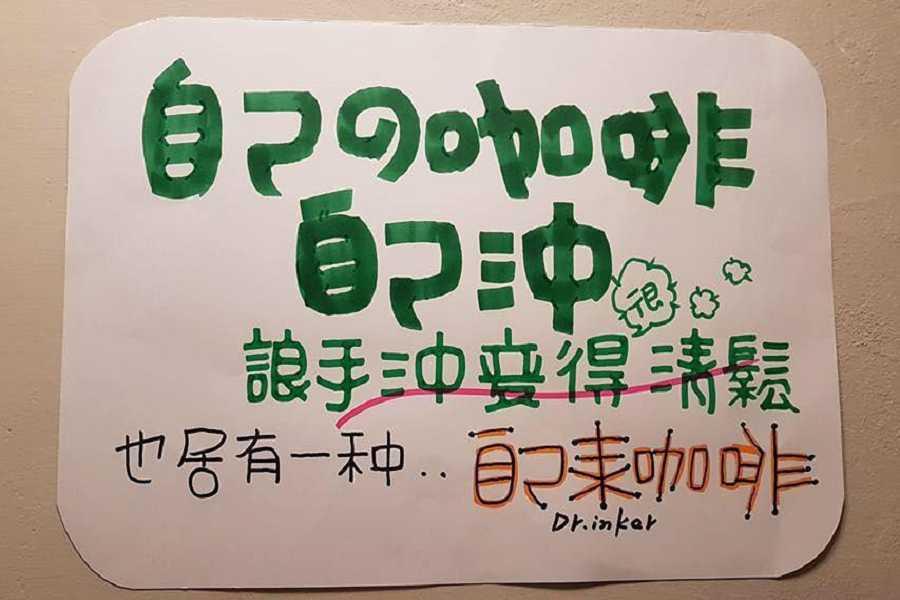 自己の咖啡
自己沖
很
誏手沖变得清鬆
也居有一种..自己来咖啡
Dr.inker